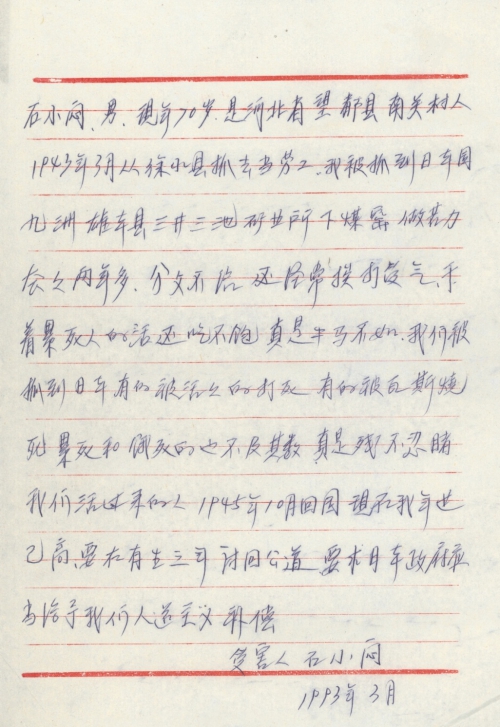 石小闷、男、现年70岁.是河北省望都县南关村人
1943年3月从徐水县抓去当劳工.我被抓到日本国
九洲雄本县三井三池矿业所下煤窑做苦力
长久两年多.分文不给还经常挨打受气.干
着累死人的活还吃不饱真是牛马不如.我们被
抓到日本有的被活久的打死有的被瓦斯烧
死累死和饿死的也不及其数真是残不忍睹
我们活过来的人1945年10月回国现在我年进
已高、要在有生三年讨回公道要求日本政府应
当给予我们人道主义补偿
受害人石小闷
1993年3月